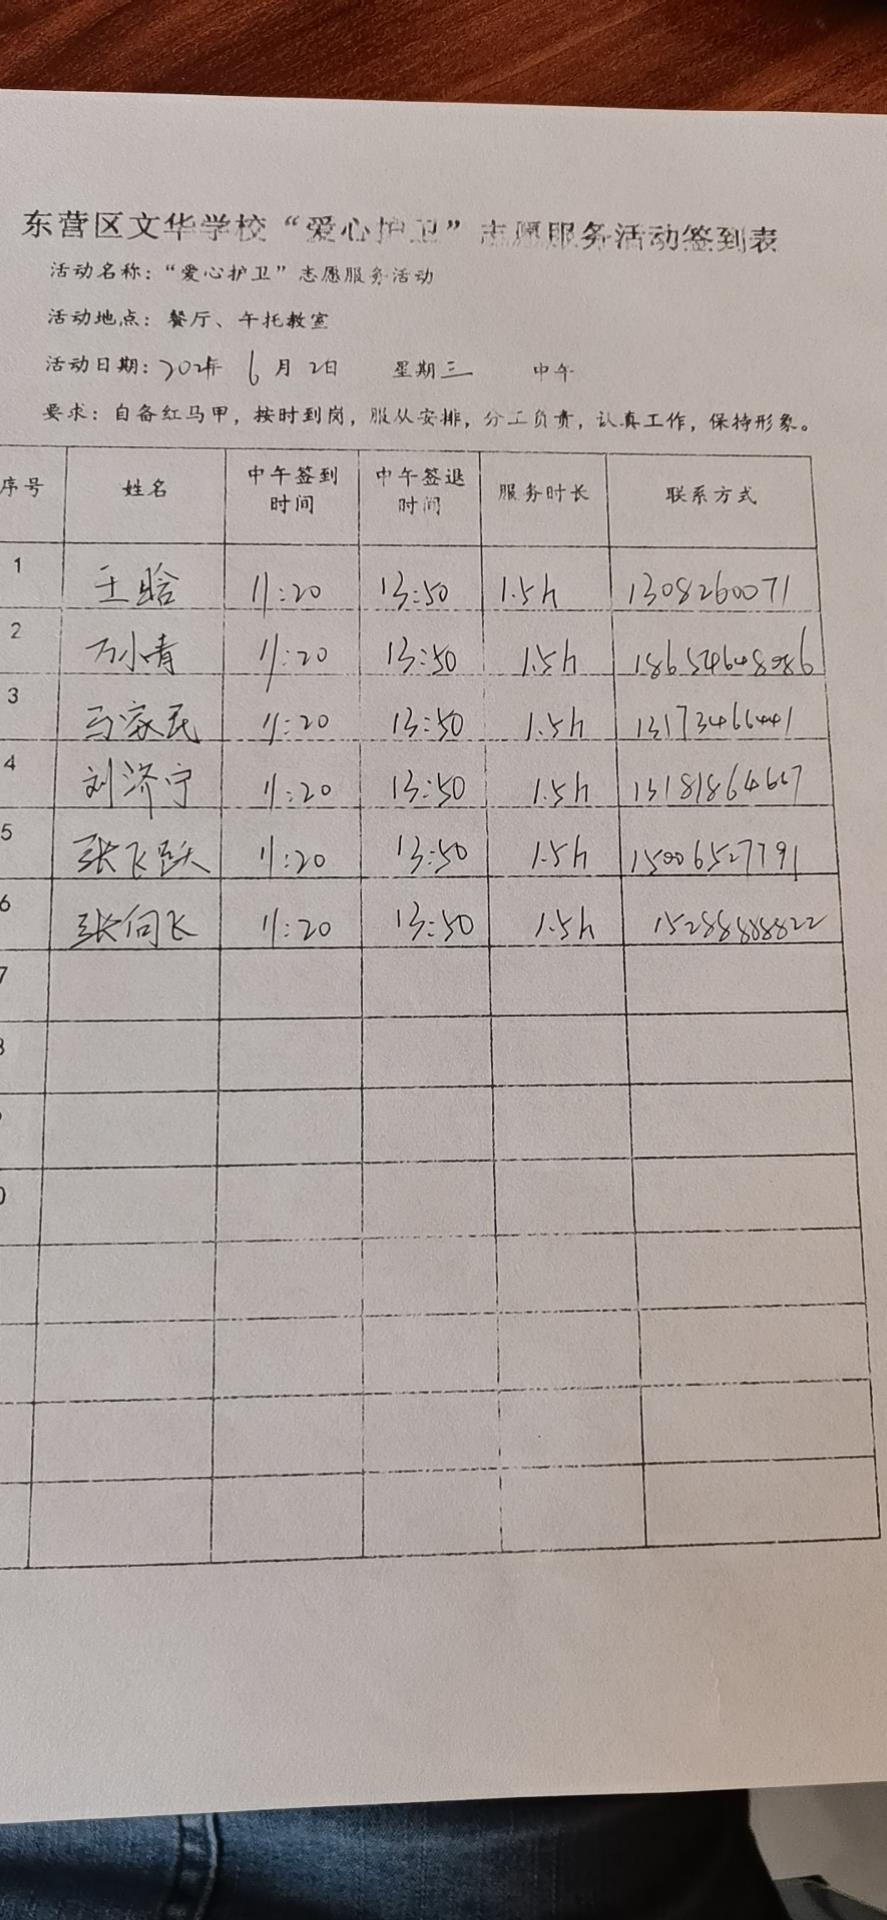 东营区文华学校“爱心护卫”志愿服务活动签到表
活动名称：“爱心护卫”志愿服务活动
活动地点：餐厅、午托教室
活动日期：202年 6月2日 星期三 中午
要求：自备红马甲，按时到岗，服从安排，分工负责，认真工作，保持形象。
序号 姓名 中午签到时间 中午签退时间 服务时长 联系方式
1 王晗 11:20 13:50 1.5h 1308260071
2 万小青 11:20 13:50 1.5h
3 马家民 11:20 13:50 1.5h
4 刘济宁 11:20 13:50 1.5h
5 张飞跃 11:20 13:50 1.5h 15006527791
6 张向飞 11:20 13:50 1.5h 15288888822
7